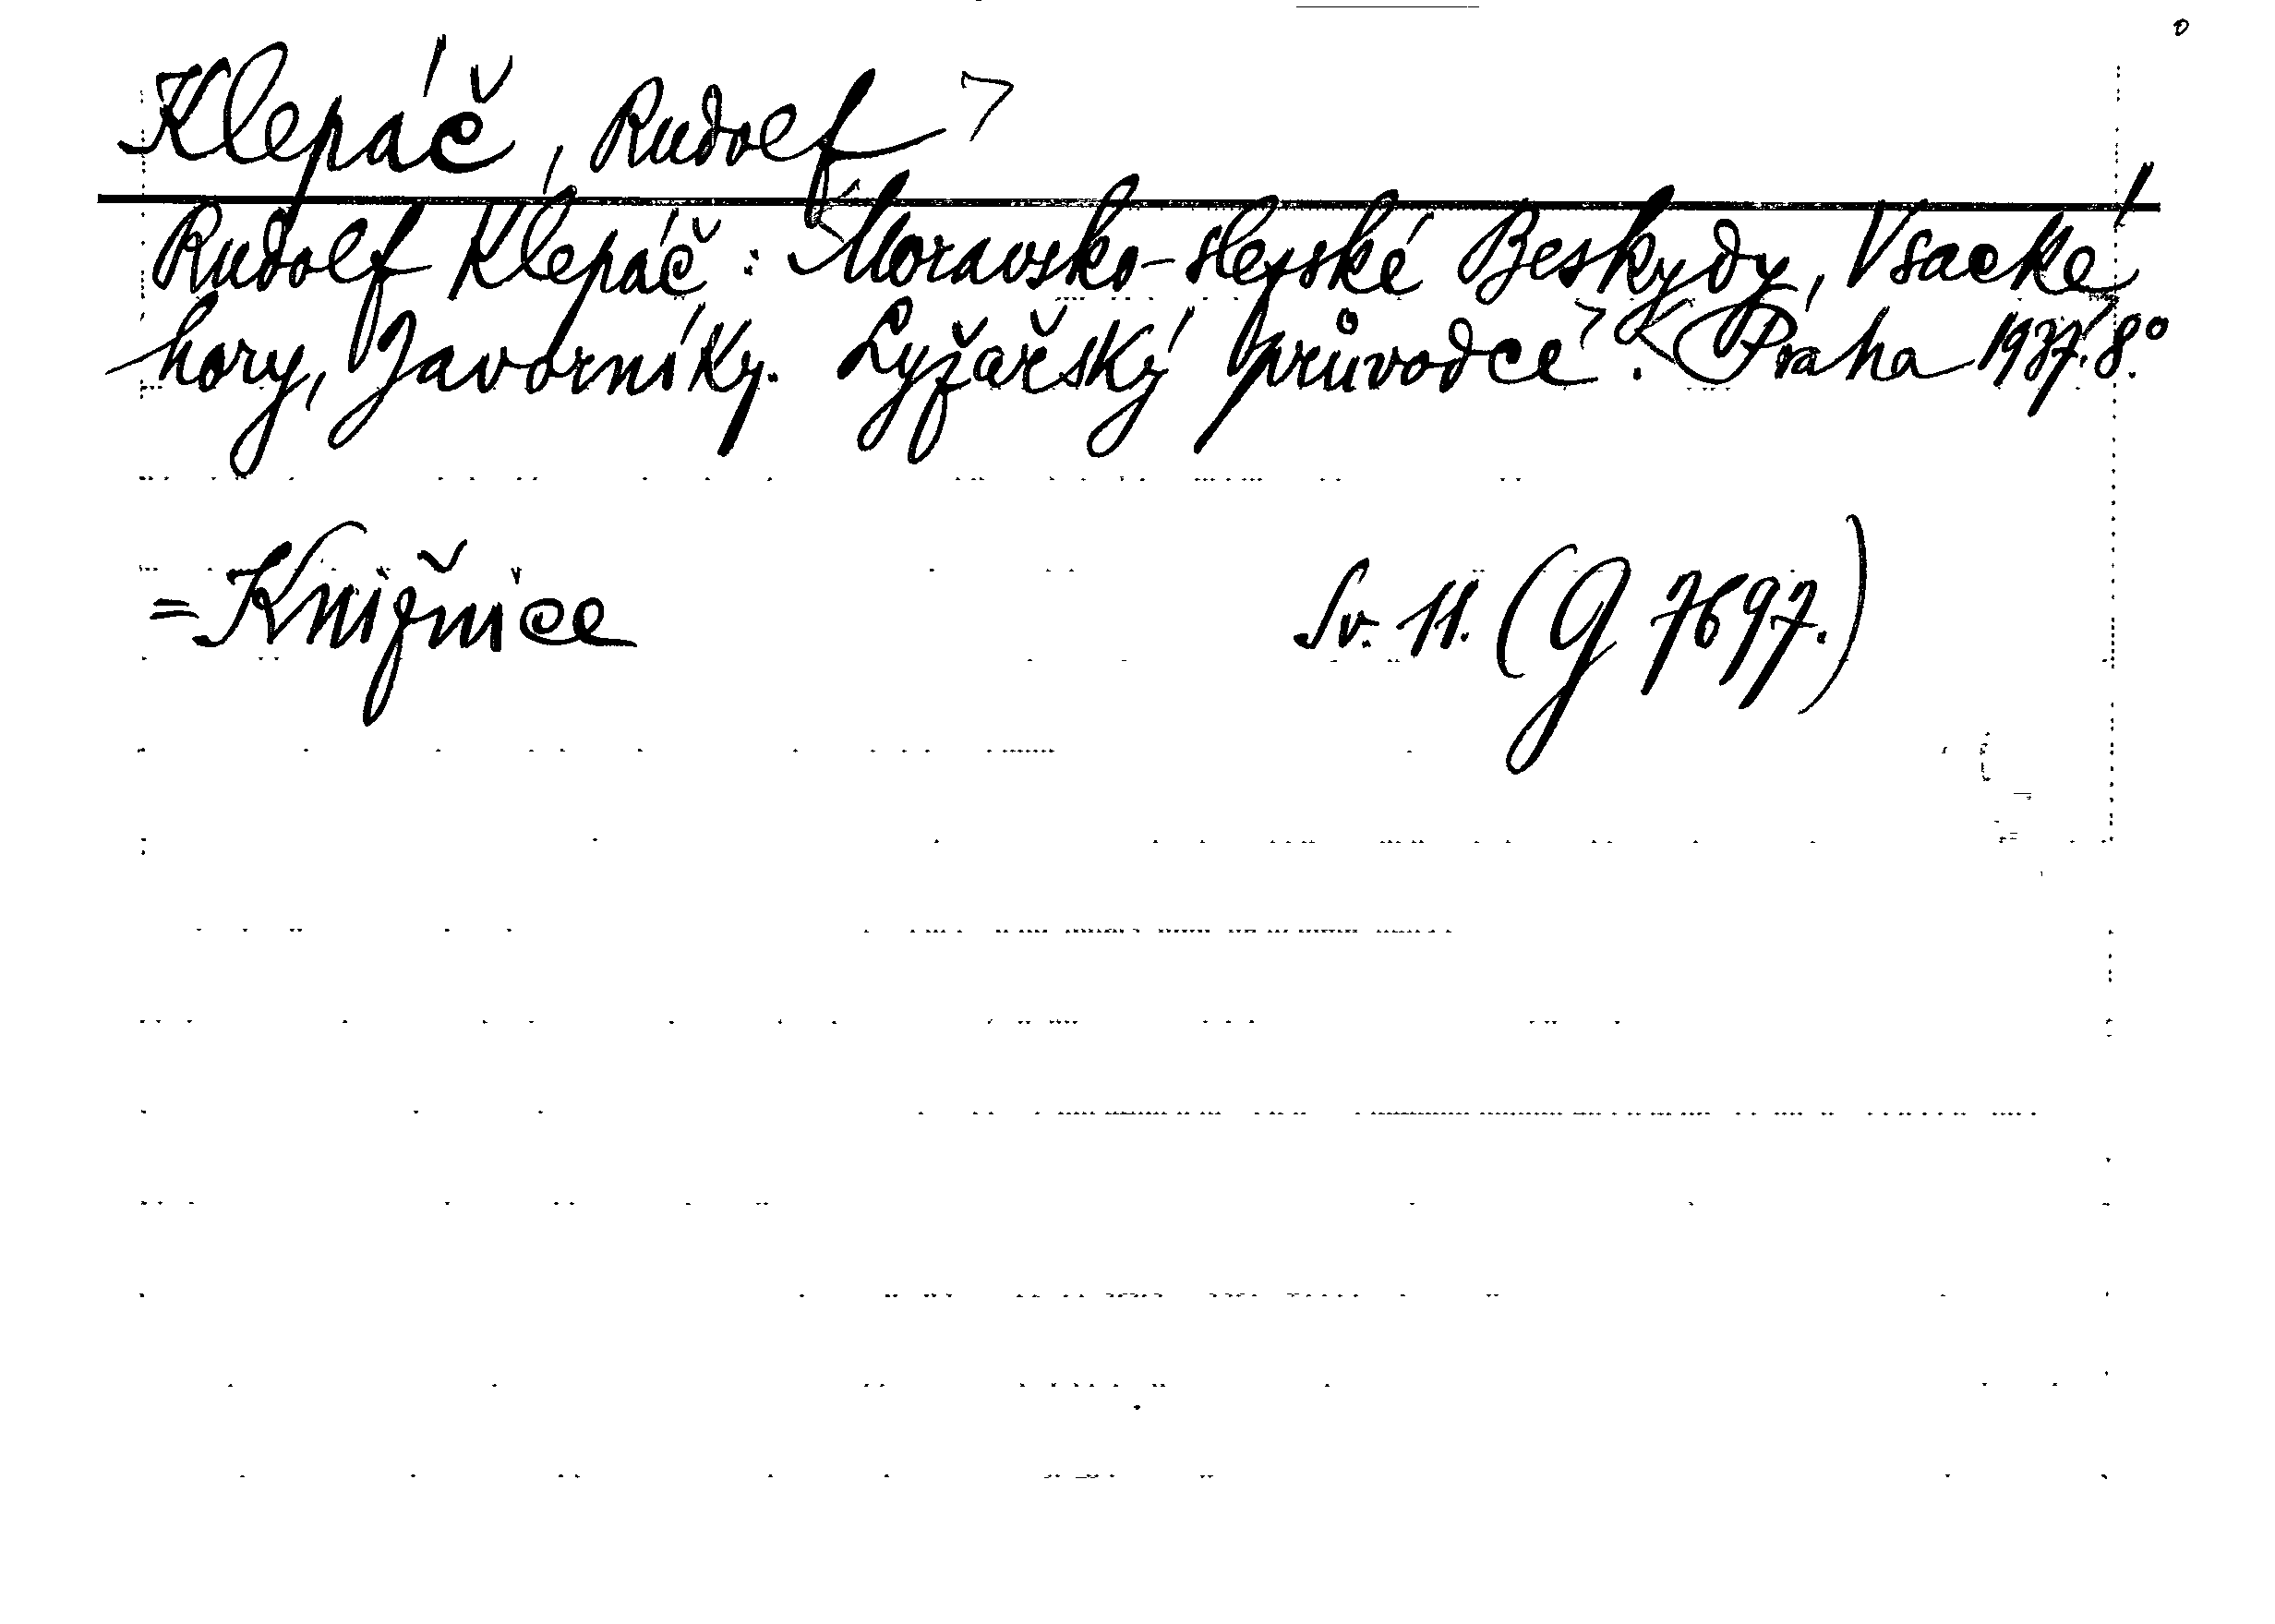 Klepáč, Rudolf
Rudolf Klepáč: Moravsko-slezské Beskydy, Vsacké
hory, Javorníky. Lyžařský průvodce. Praha 1937. 8°.
=Knižnice Sv. 11. (G 7697.)